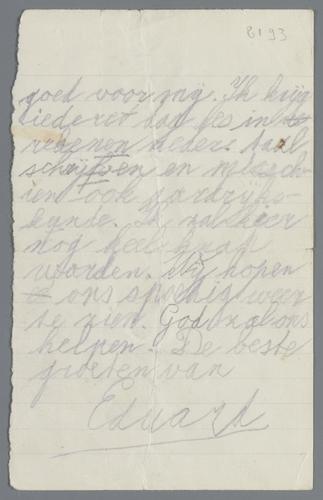 8193
goed voor mij. Ik krijg
iedere dag les in
rekenen neder. taal
schrijven en missch-
ien ook aardrijks-
kunde. Ik zal weer
nog heel knap
worden. Wij hopen
ons spoedig weer
te zien. God zal ons
helpen. De beste
groeten van
Eduard